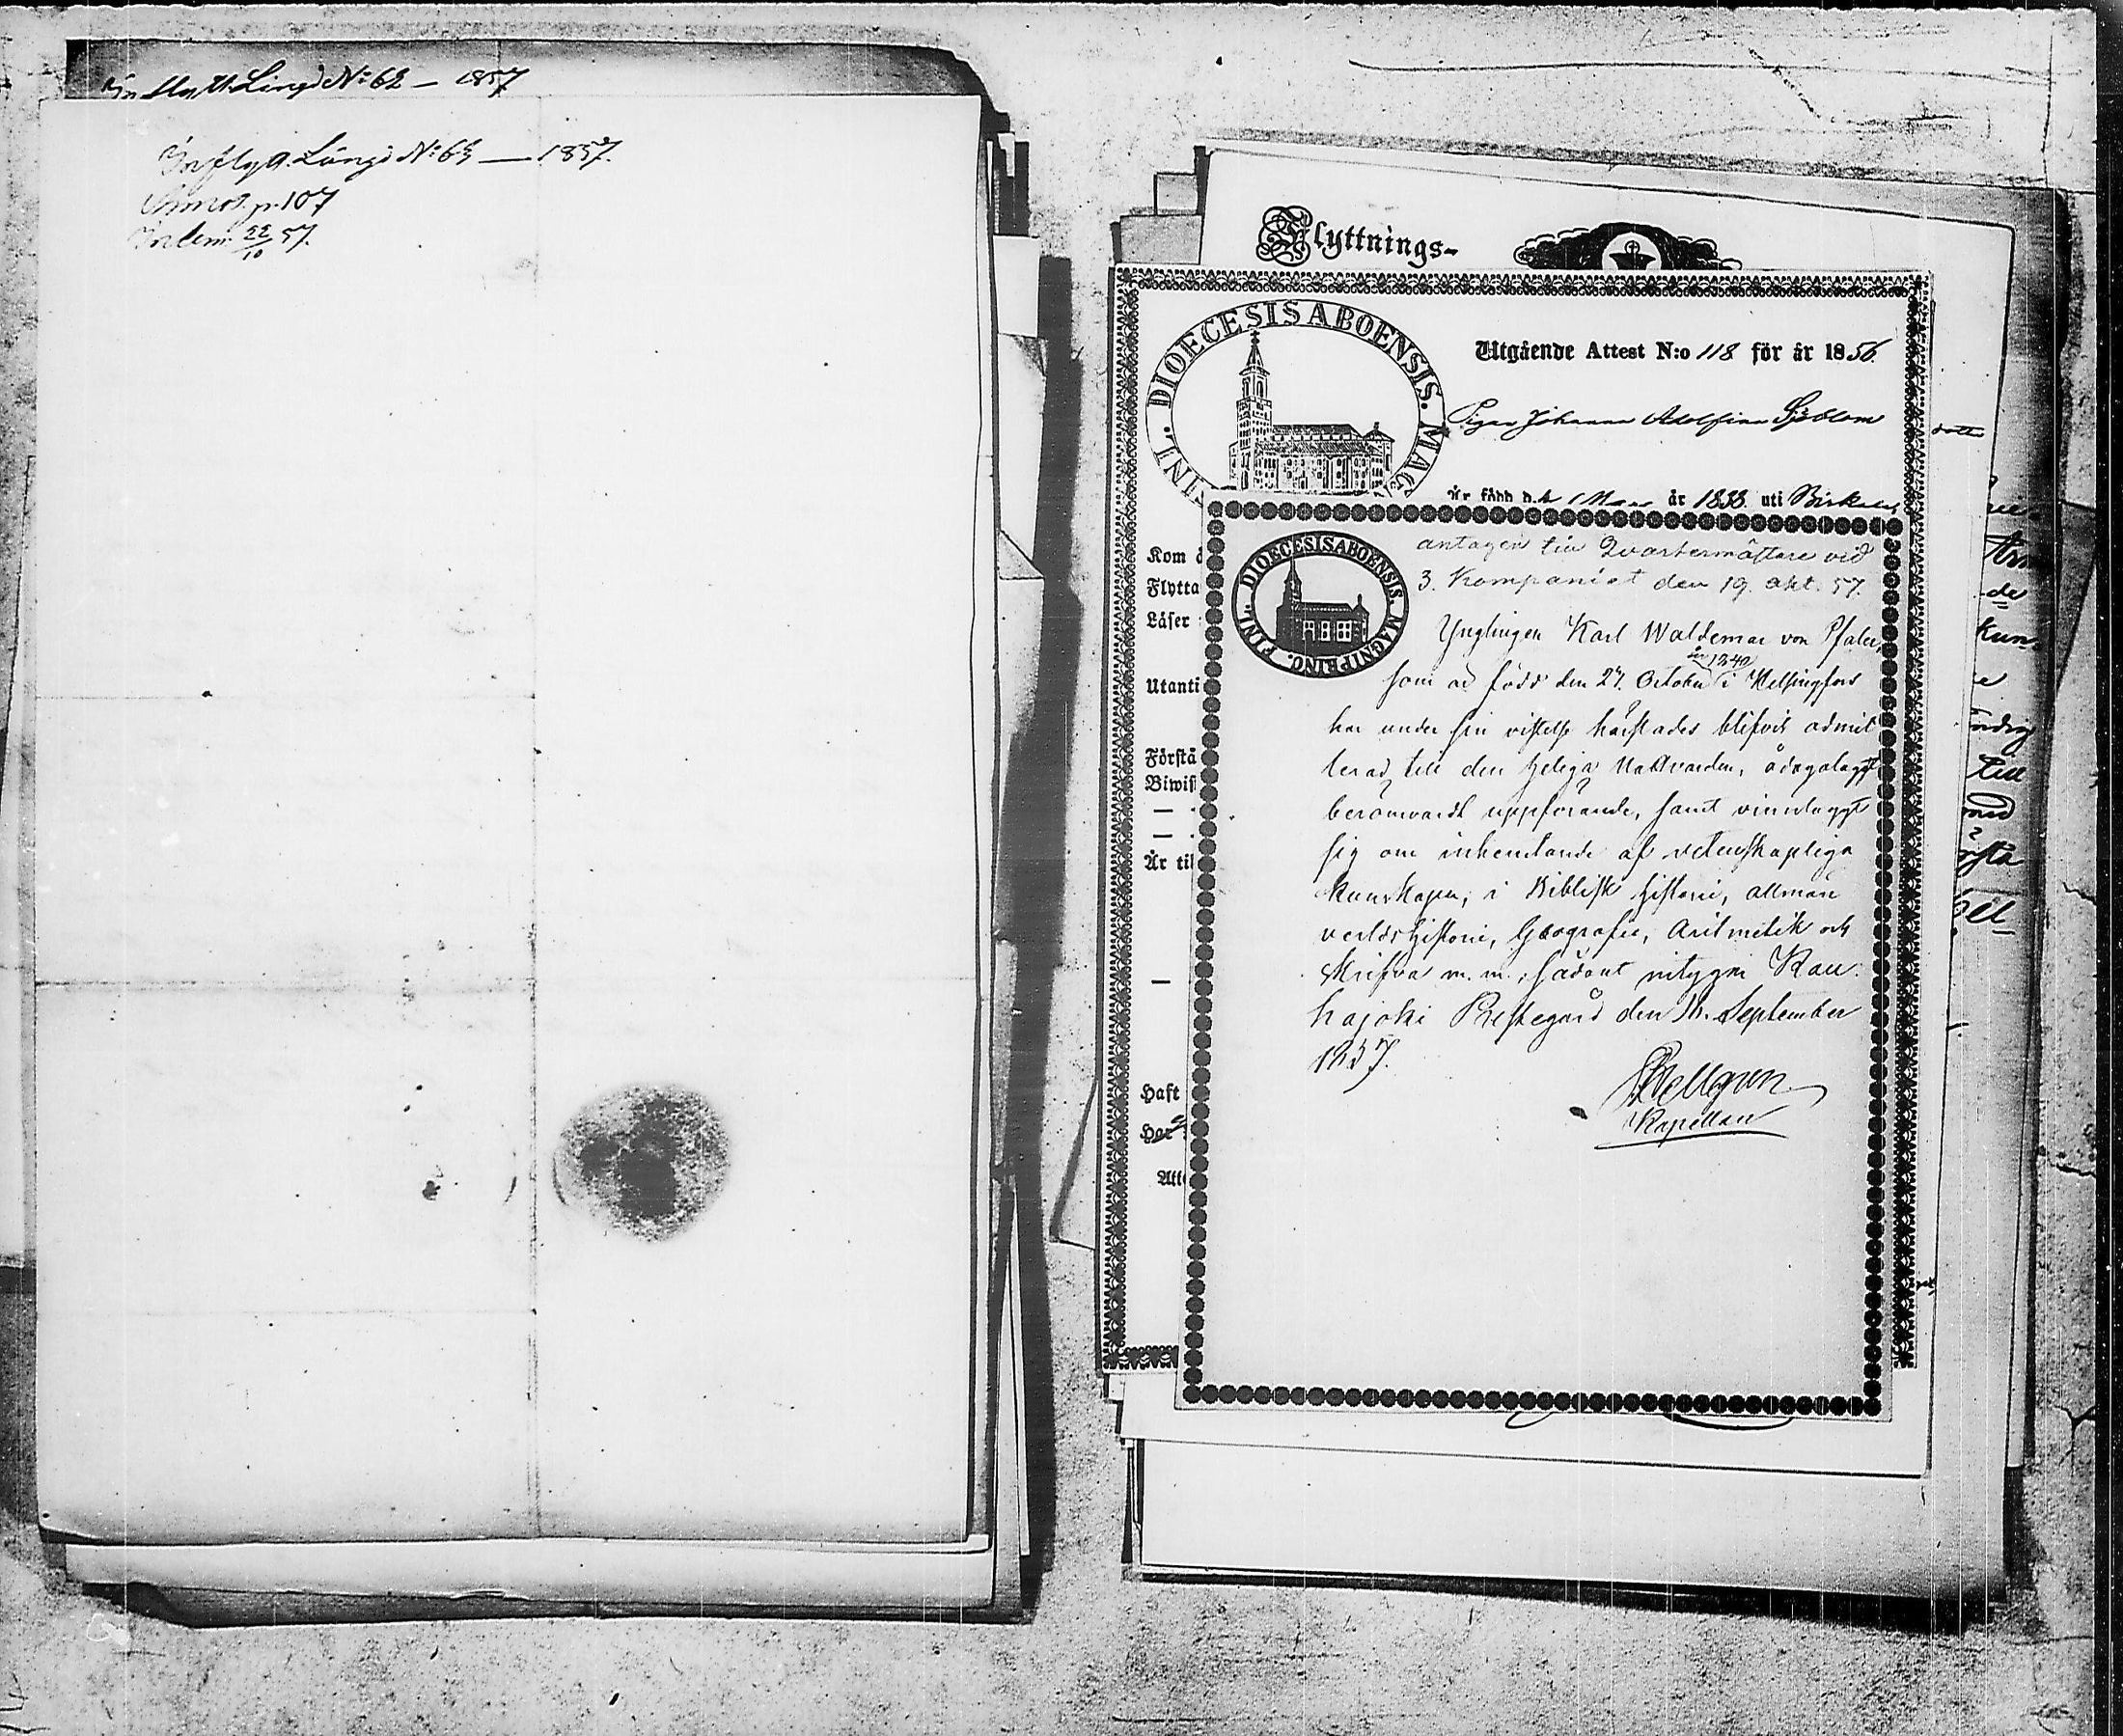 Inflytt. Längd № 62 — 1857
Inflytt. Längd № 63 — 1857.
p. 107
Inlem. 22/10 57.
Flyttnings-
DIOECESIS ABOENSIS. MAG
FINI.
Utgående Attest N:o 118 för år 1856.
Pigan Johanna Adolfina Sjöblom
är född d. 1 Mars år 1833 uti
Kom
Flytta
Läser
Utanti
Förstå
Biwis
Är til
Haft
Har
Atte
DIOECESIS ABOENSIS. MAGNI PRINC. FINL.
antagen till Qvartermästare vid
3. Kompaniet den 19. okt. 57.
Ynglingen Karl Waldemar von Pfaler,
år 1840
som är född den 27. October i Helsingfors
har under sin vistelse härstädes blifvit admit
terad till den heliga Nattvarden, ådagalagt
berömvärdt uppförande, samt vinnlaggt
sig om inhemtande af vetenskapliga
kunskaper, i Biblisk historie, allmän
verldshistorie, Geografie, Aritmetik och
skrifva m. m., sådant intygar Kau-
hajoki Prestegård den 18. September
1857.
Hellgren
Kapellan